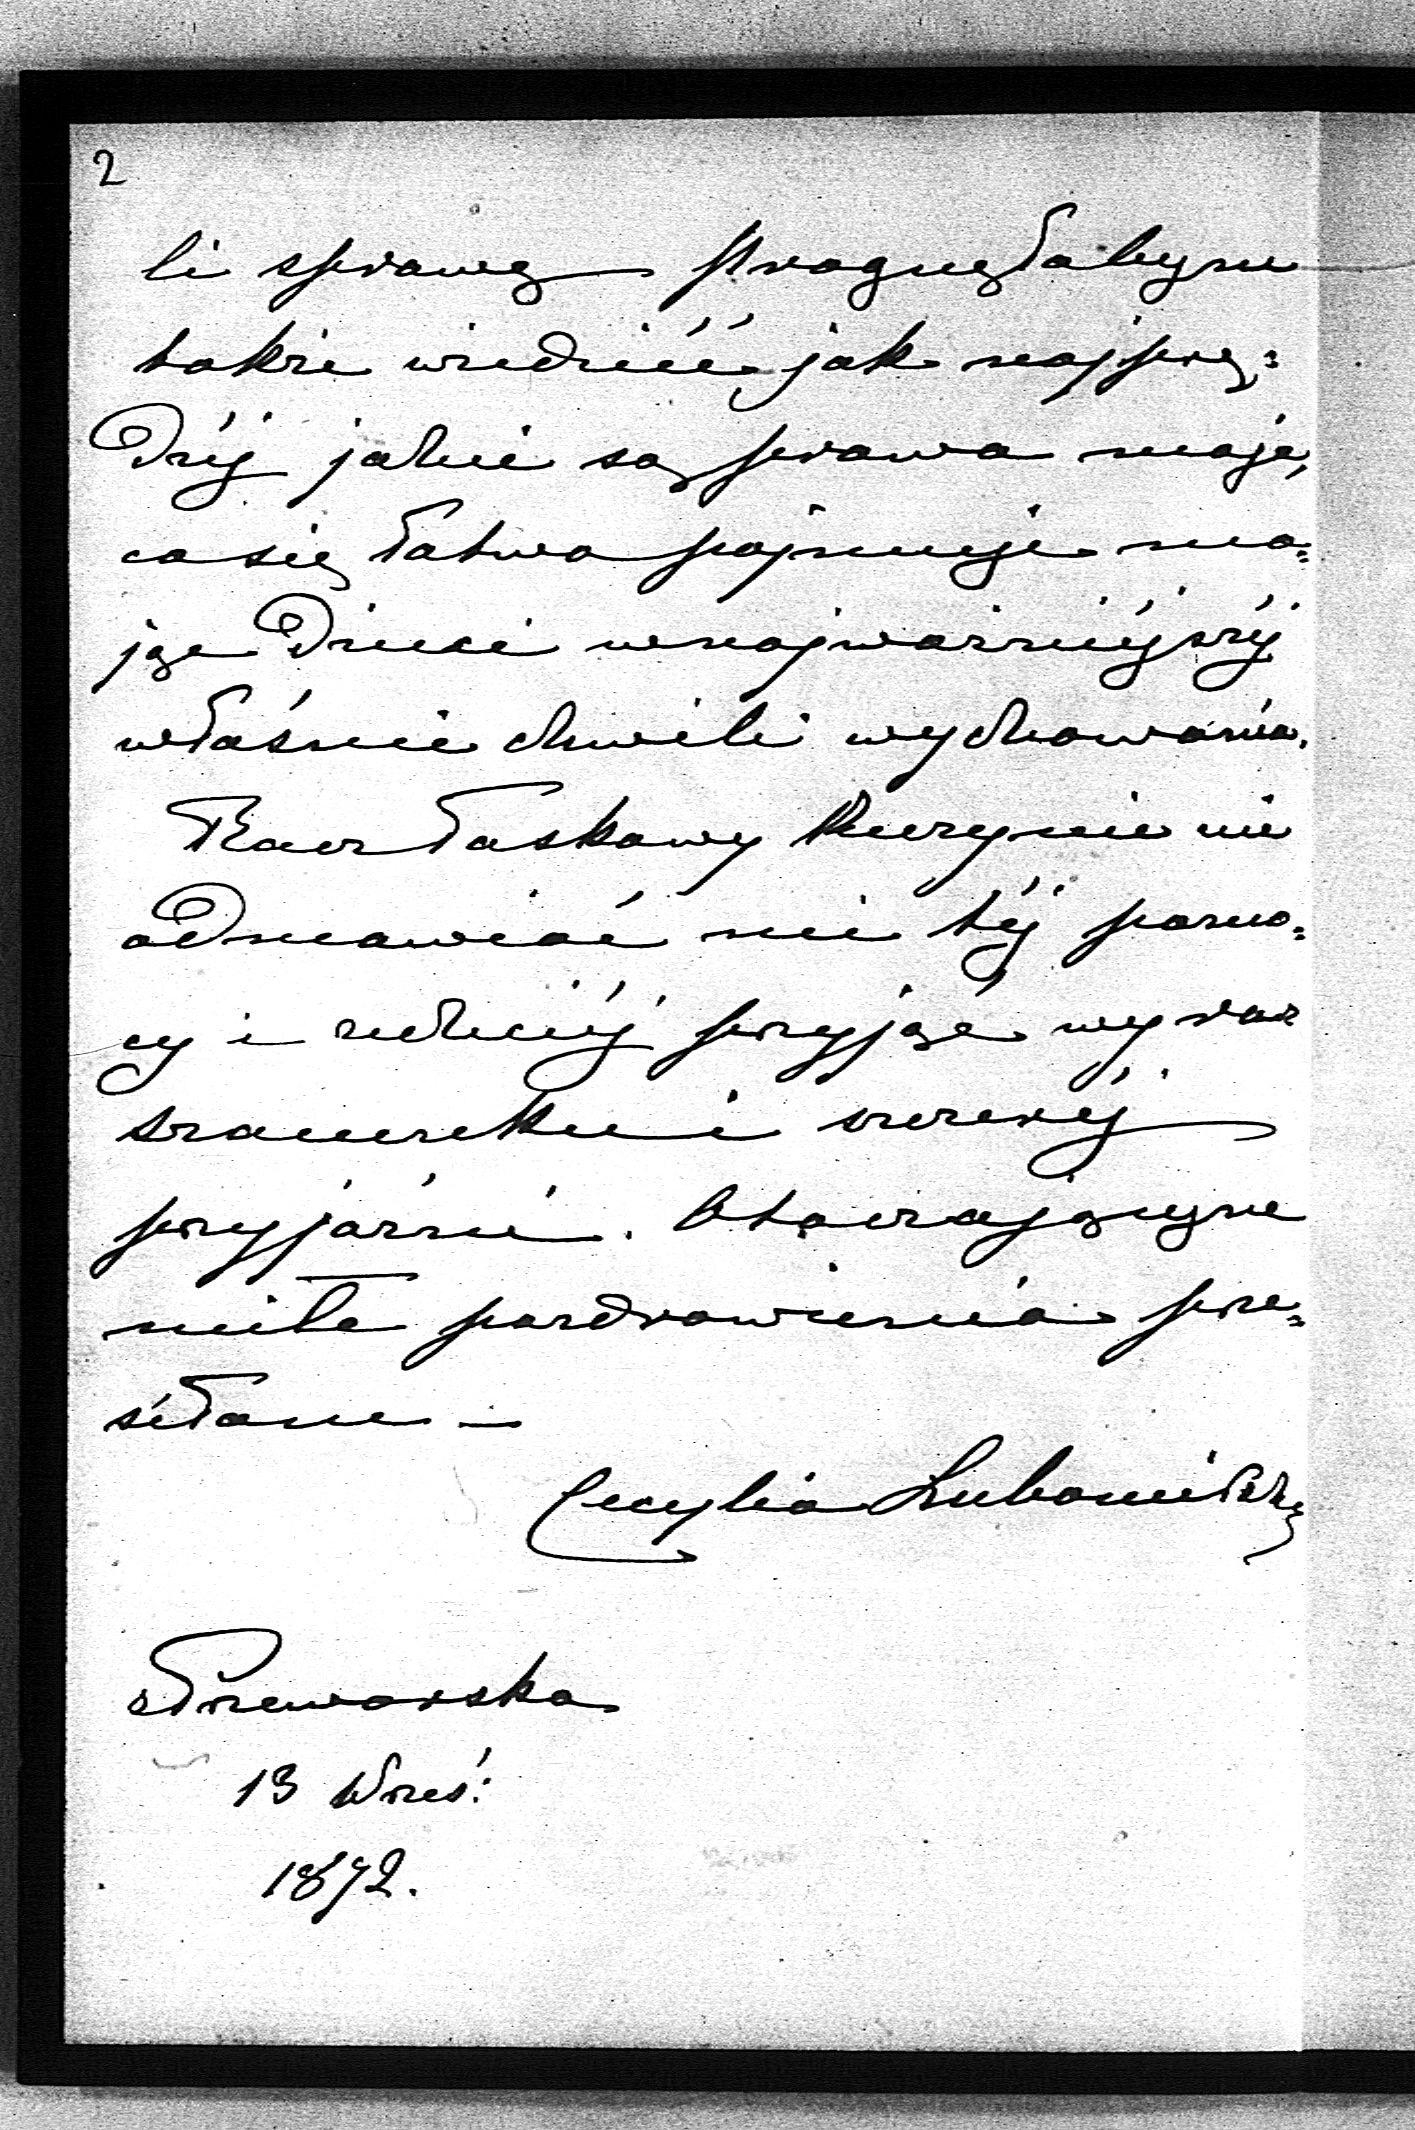 2
li sprawę. Pragnęłabym
także wiedzieć jak najprę=
dzéj jakie są prawa moje,
co się łatwo pojmuje ma=
jąc dzieci w najważniéjszéj
właśnie chwili wychowania.
Racz łaskawy Kuzynie nie
odmawiać mi téj pomo=
cy i zechciéj przyjąć wyraz
szacunku i szczeréj
przyjaźni. Otaczającym
miłe pozdrowienia prze=
séłam —
Cecylia Lubomirska
Przeworska
13 Wrześ:
1872.